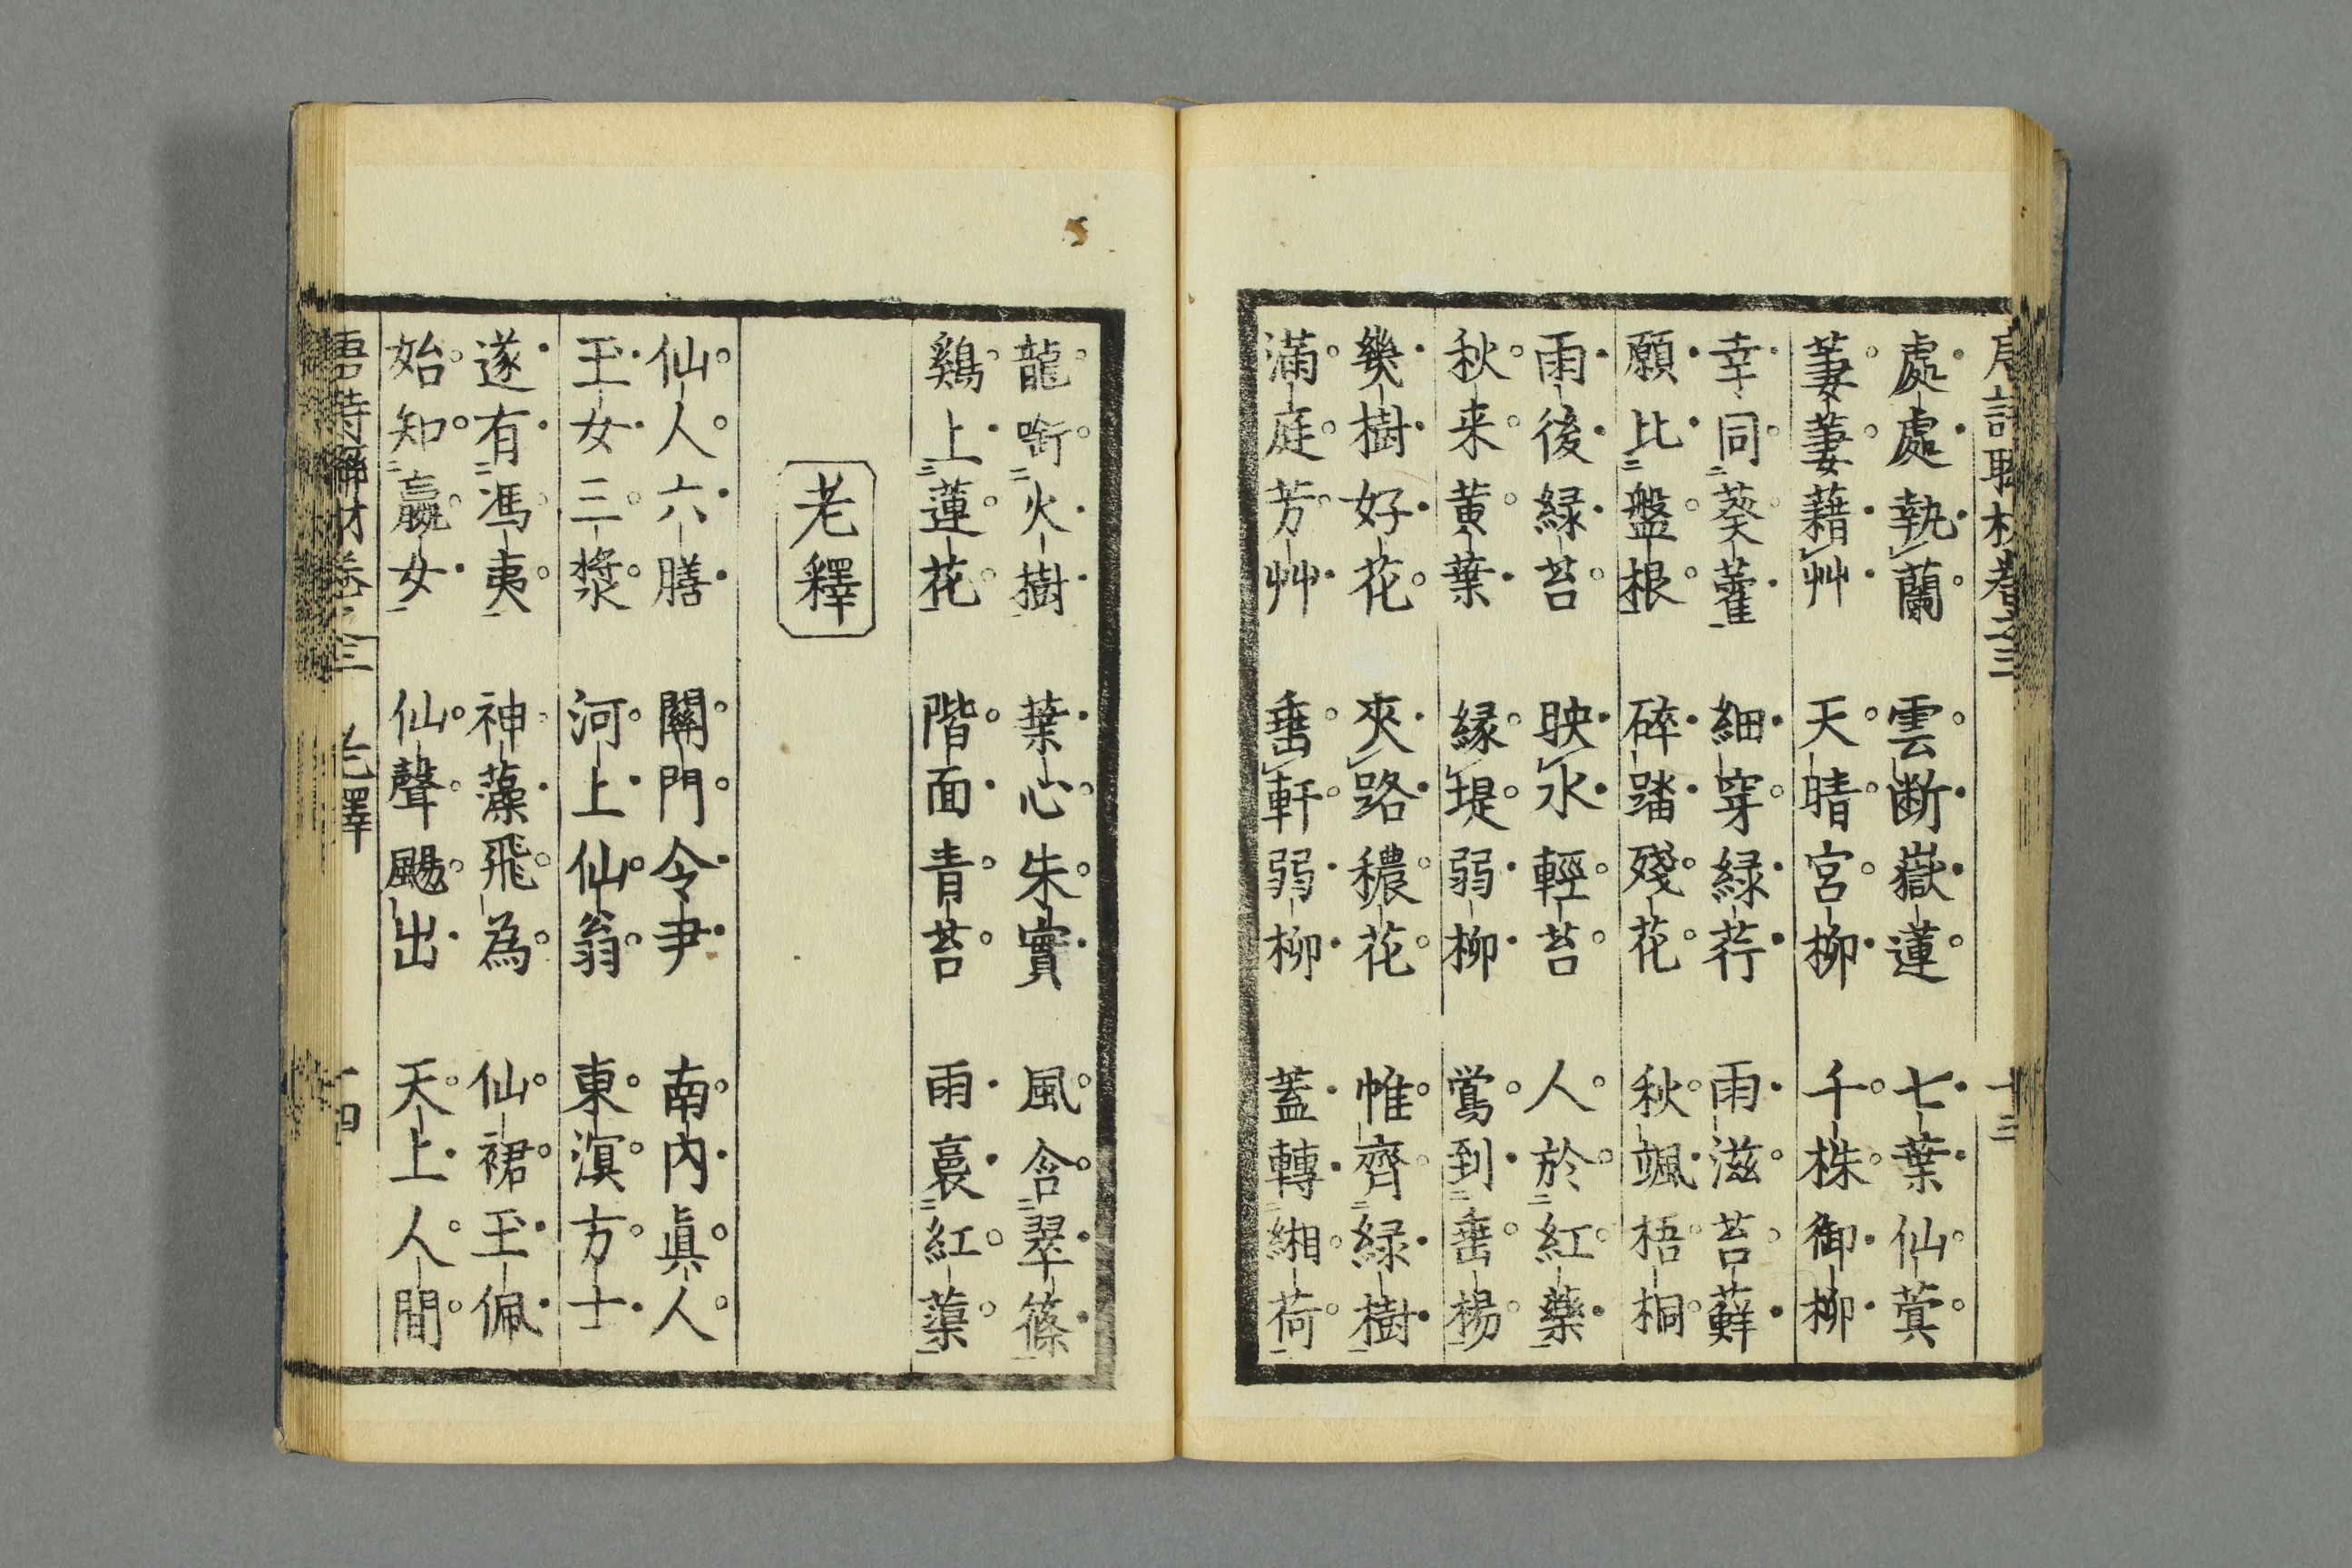 唐詩聯材卷之三 十三
處處執蘭 雲断嶽蓮 七葉仙蓂
萋萋藉艸 天晴宮柳 千株御柳
幸同葵藿 細穿緑荇 雨滋苔蘚
願比盤根 碎踏殘花 秋颯梧桐
雨後緑苔 映水輕苔 人於紅藥
秋来黄葉 縁堤弱柳 鶯到垂楊
幾樹好花 夾路穠花 帷齊緑樹
滿庭芳艸 垂軒弱柳 蓋轉緗荷
龍銜火樹 葉心朱實 風含翠篠
鷄上蓮花 階面青苔 雨裛紅蕖
老釋
仙人六膳 關門令尹 南内眞人
玉女三漿 河上仙翁 東溟方士
遂有馮夷 神藻飛為 仙裙玉佩
始知嬴女 仙聲颺出 天上人間
唐詩聯材卷之三 老釋 十四